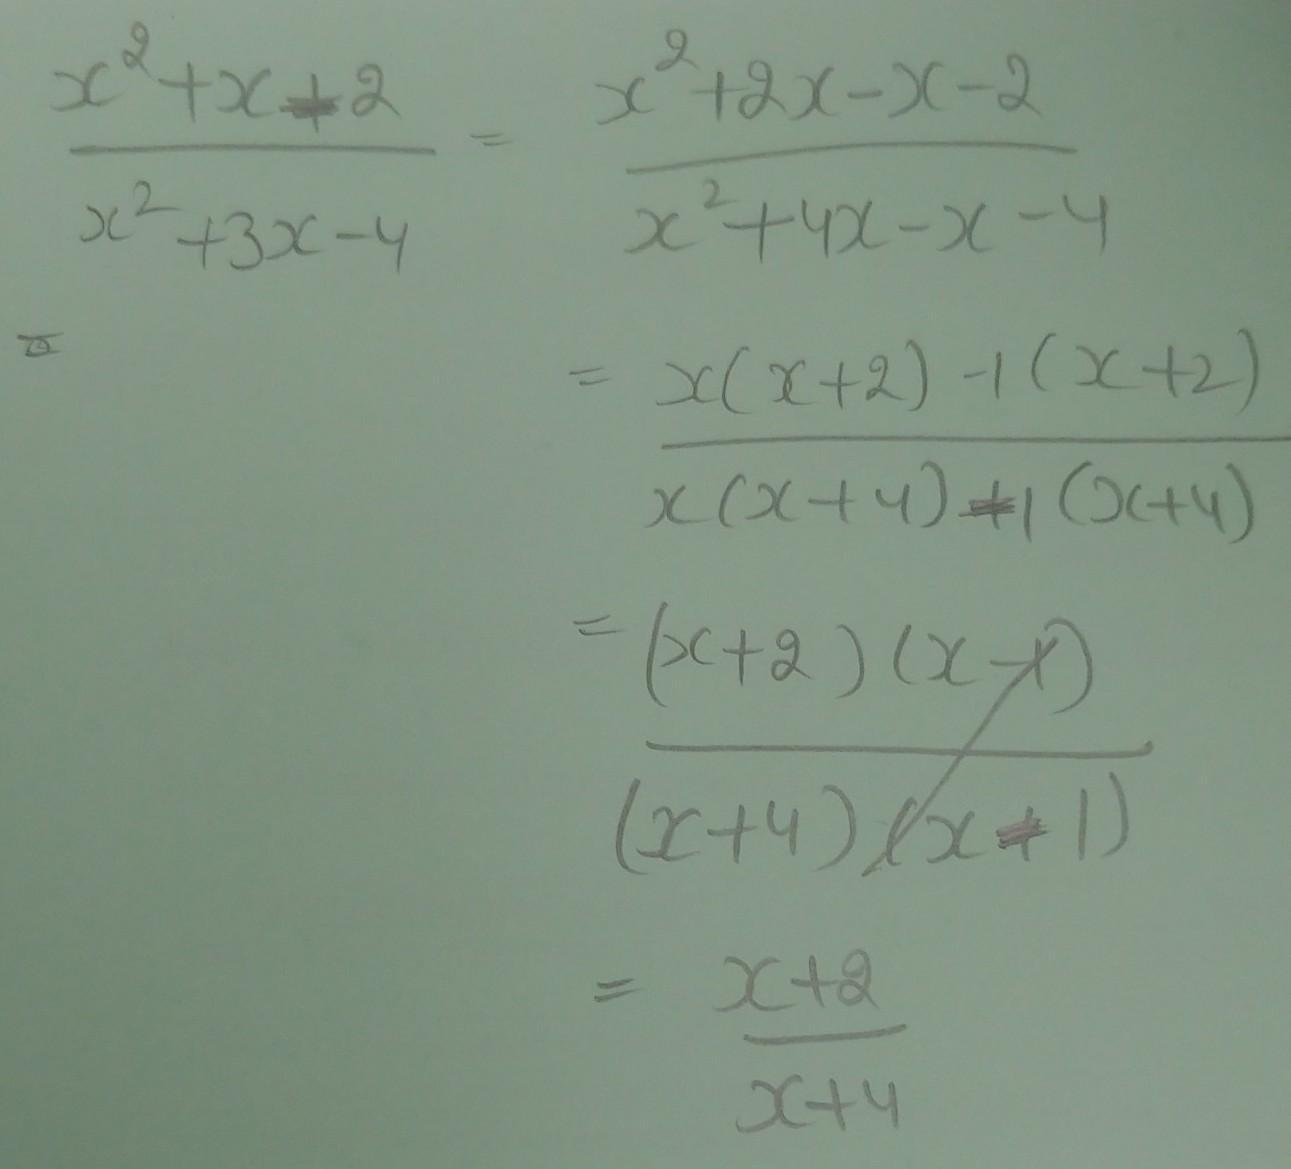 x²+x-2 / x²+3x-4 = x²+2x-x-2 / x²+4x-x-4
= x(x+2)-1(x+2) / x(x+4)-1(x+4)
= (x+2)(x-1) / (x+4)(x-1)
= x+2 / x+4